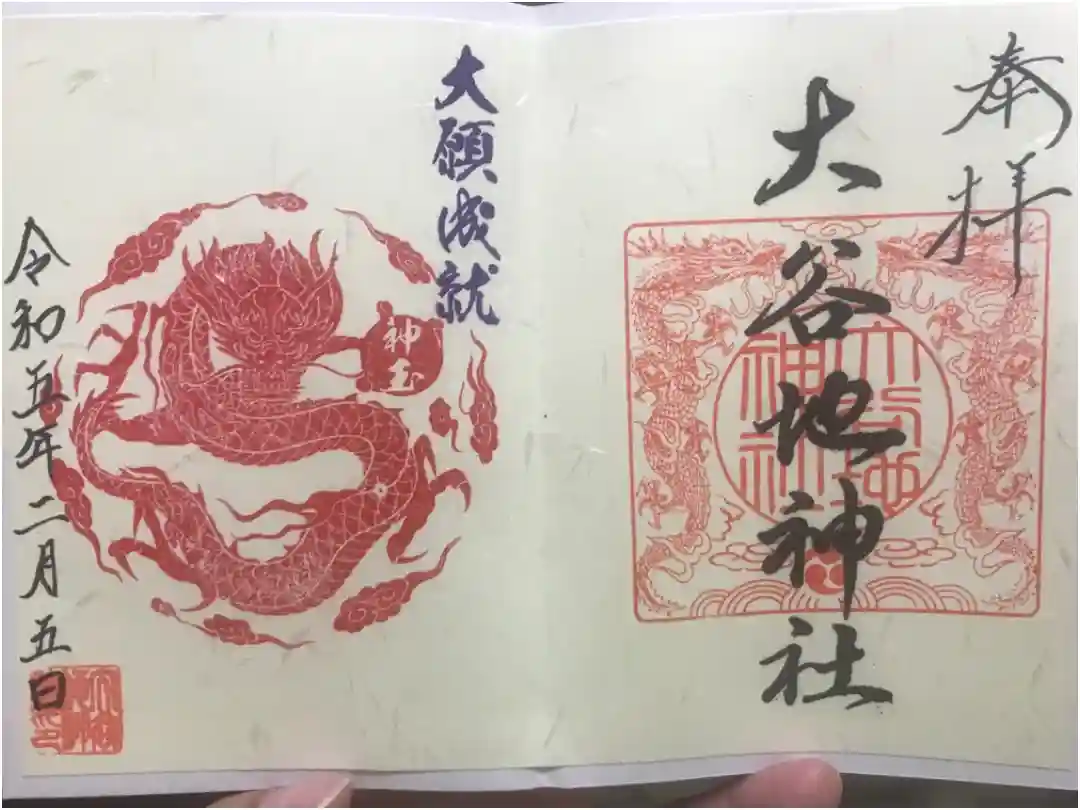 奉拝
大谷地神社
大谷地
神社
大願成就
神玉
令和五年二月五日